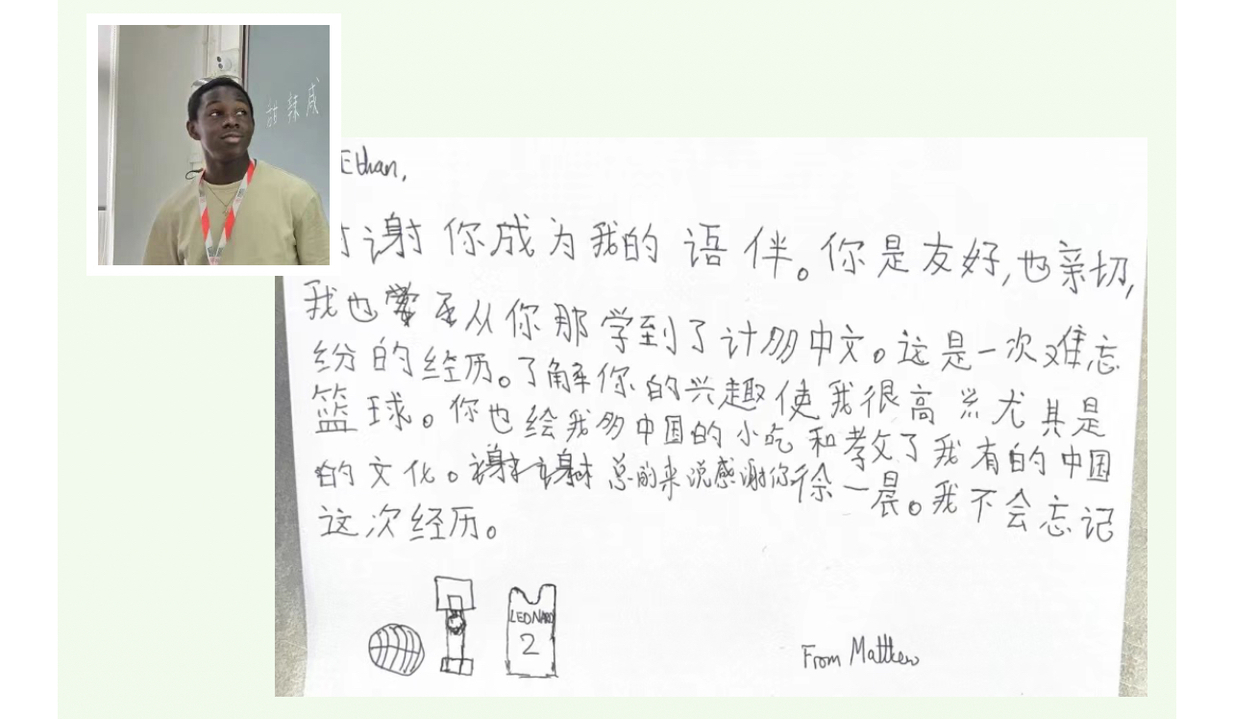 甜 辣 咸
Ethan,
谢你成为我的语伴。你是友好,也亲切,
我也 从你那学到了计多中文。这是一次难忘
纷的经历。了解你的兴趣使我很高 尤其是
篮球。你也给我多中国的小吃和教了我有的中国
的文化。总的来说感谢你徐一晨。我不会忘记
这次经历。
LEONARD
2
From Matthew